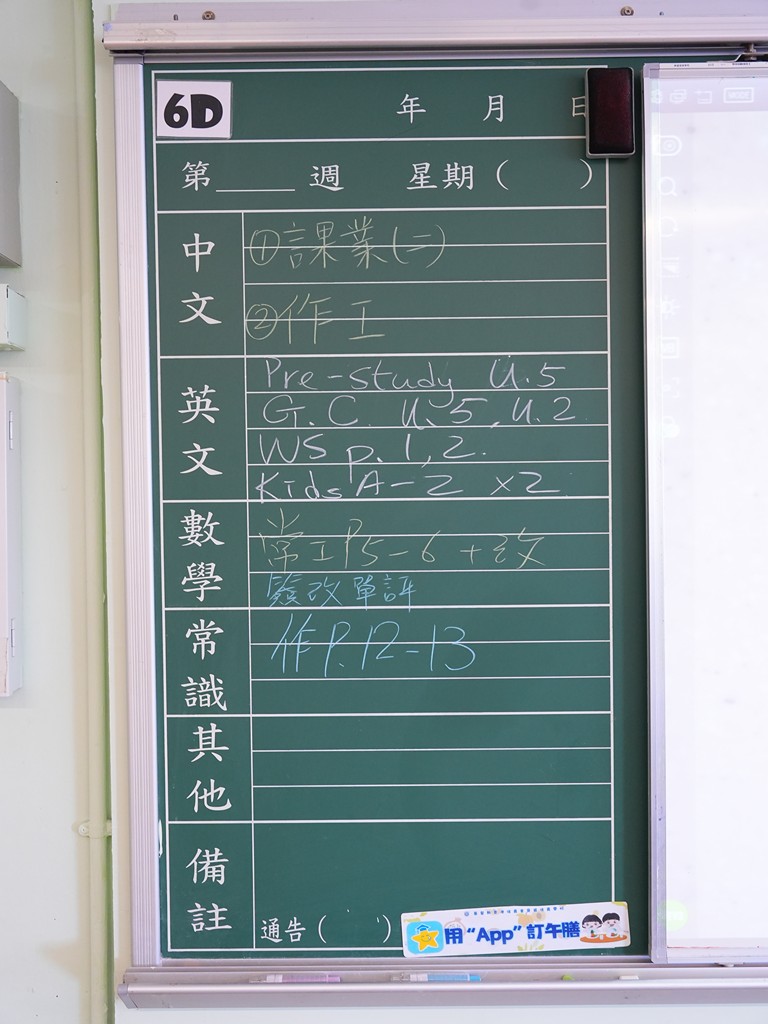 6D
年 月 日
第____週 星期( )
中文
①課業(二)
②作工
英文
Pre-study U.5
G.C. U.5, U.2
WS p.1,2.
Kids A-Z x2
數學
常工P5-6 + 改
改單評
常識
作P.12-13
其他
備註
通告( )
用“App”訂午膳